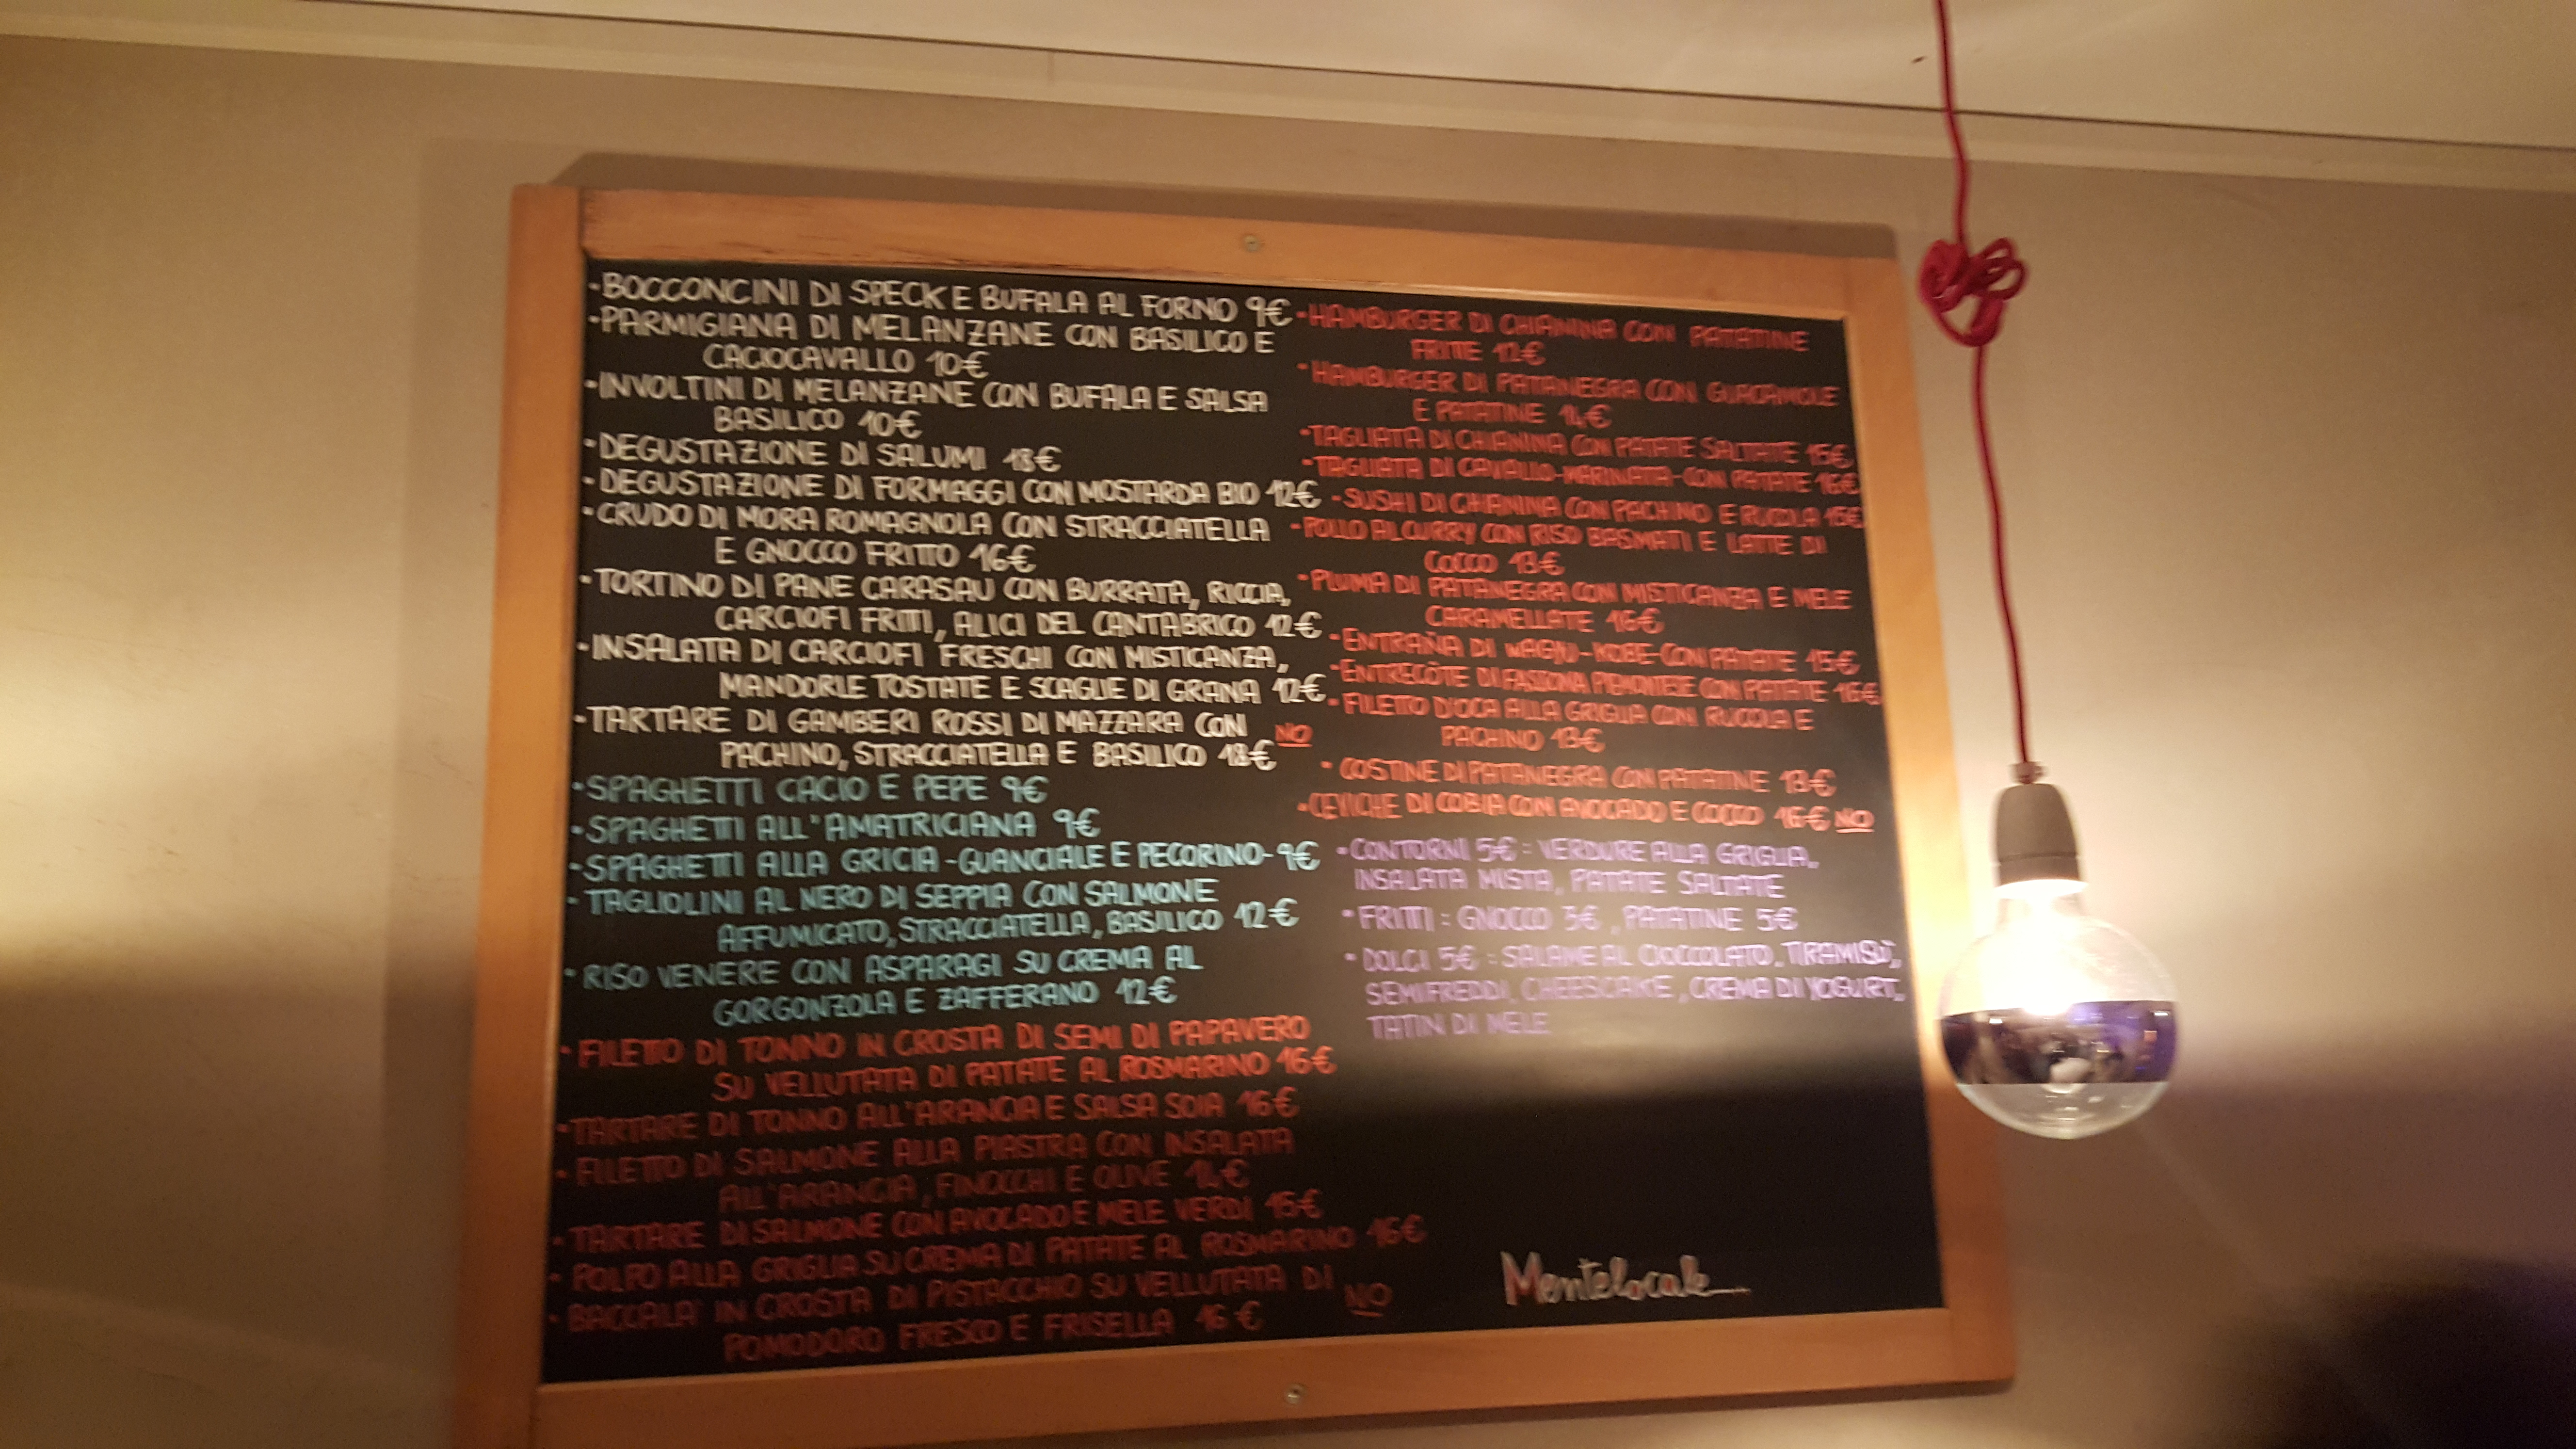 •BOCCONCINI DI SPECK E BUFALA AL FORNO 9€
•PARMIGIANA DI MELANZANE CON BASILICO E
CACIOCAVALLO 10€
•INVOLTINI DI MELANZANE CON BUFALA E SALSA
BASILICO 10€
•DEGUSTAZIONE DI SALUMI 18€
•DEGUSTAZIONE DI FORMAGGI CON MOSTARDA BIO 12€
•CRUDO DI MORA ROMAGNOLA CON STRACCIATELLA
E GNOCCO FRITTO 16€
•TORTINO DI PANE CARASAU CON BURRATA, RICCIA,
CARCIOFI FRITTI, ALICI DEL CANTABRICO 12€
•INSALATA DI CARCIOFI FRESCHI CON MISTICANZA,
MANDORLE TOSTATE E SCAGLIE DI GRANA 12€
•TARTARE DI GAMBERI ROSSI DI MAZZARA CON
PACHINO, STRACCIATELLA E BASILICO 18€ NO
•SPAGHETTI CACIO E PEPE 9€
•SPAGHETTI ALL'AMATRICIANA 9€
•SPAGHETTI ALLA GRICIA -GUANCIALE E PECORINO- 9€
•TAGLIOLINI AL NERO DI SEPPIA CON SALMONE
AFFUMICATO, STRACCIATELLA, BASILICO 12€
•RISO VENERE CON ASPARAGI SU CREMA AL
GORGONZOLA E ZAFFERANO 12€
•FILETTO DI TONNO IN CROSTA DI SEMI DI PAPAVERO
SU VELLUTATA DI PATATE AL ROSMARINO 16€
•TARTARE DI TONNO ALL'ARANCIA E SALSA SOIA 16€
•FILETTO DI SALMONE ALLA PIASTRA CON INSALATA
ALL'ARANCIA, FINOCCHI E OLIVE 14€
•TARTARE DI SALMONE CON AVOCADO E MELE VERDI 15€
•POLPO ALLA GRIGLIA SU CREMA DI PATATE AL ROSMARINO 16€
•BACCALA' IN CROSTA DI PISTACCHIO SU VELLUTATA DI
POMODORO FRESCO E FRISELLA 16€ NO
•HAMBURGER DI CHIANINA CON PATATINE
FRITTE 12€
•HAMBURGER DI PATANEGRA CON GUACAMOLE
E PATATINE 14€
•TAGLIATA DI CHIANINA CON PATATE SALTATE 15€
•TAGLIATA DI CAVALLO-MARINATA-CON PATATE 16€
•SUSHI DI CHIANINA CON PACHINO E RUCOLA 15€
•POLLO AL CURRY CON RISO BASMATI E LATTE DI
COCCO 13€
•PLUMA DI PATANEGRA CON MISTICANZA E MELE
CARAMELLATE 16€
•ENTRAÑA DI WAGYU-KOBE-CON PATATE 15€
•ENTRECÔTE DI FASSONA PIEMONTESE CON PATATE 16€
•FILETTO D'OCA ALLA GRIGLIA CON RUCOLA E
PACHINO 13€
•COSTINE DI PATANEGRA CON PATATINE 13€
•CEVICHE DI COBIA CON AVOCADO E COCCO 16€ NO
•CONTORNI 5€: VERDURE ALLA GRIGLIA,
INSALATA MISTA, PATATE SALTATE
•FRITTI: GNOCCO 3€, PATATINE 5€
•DOLCI 5€: SALAME AL CIOCCOLATO, TIRAMISÙ,
SEMIFREDDI, CHEESCAKE, CREMA DI YOGURT,
TATIN DI MELE
Mentelocale